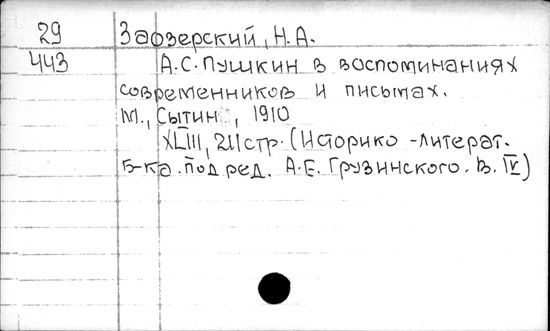 29 Заозерский, Н.А.
443 А.С. Пушкин в воспоминаниях
современников и письмах.
М., Сытин, 1910
XLIII, 211 стр. (Историко-литерат.
Б-ка. под ред. А.Е. Грузинского. В. IV)